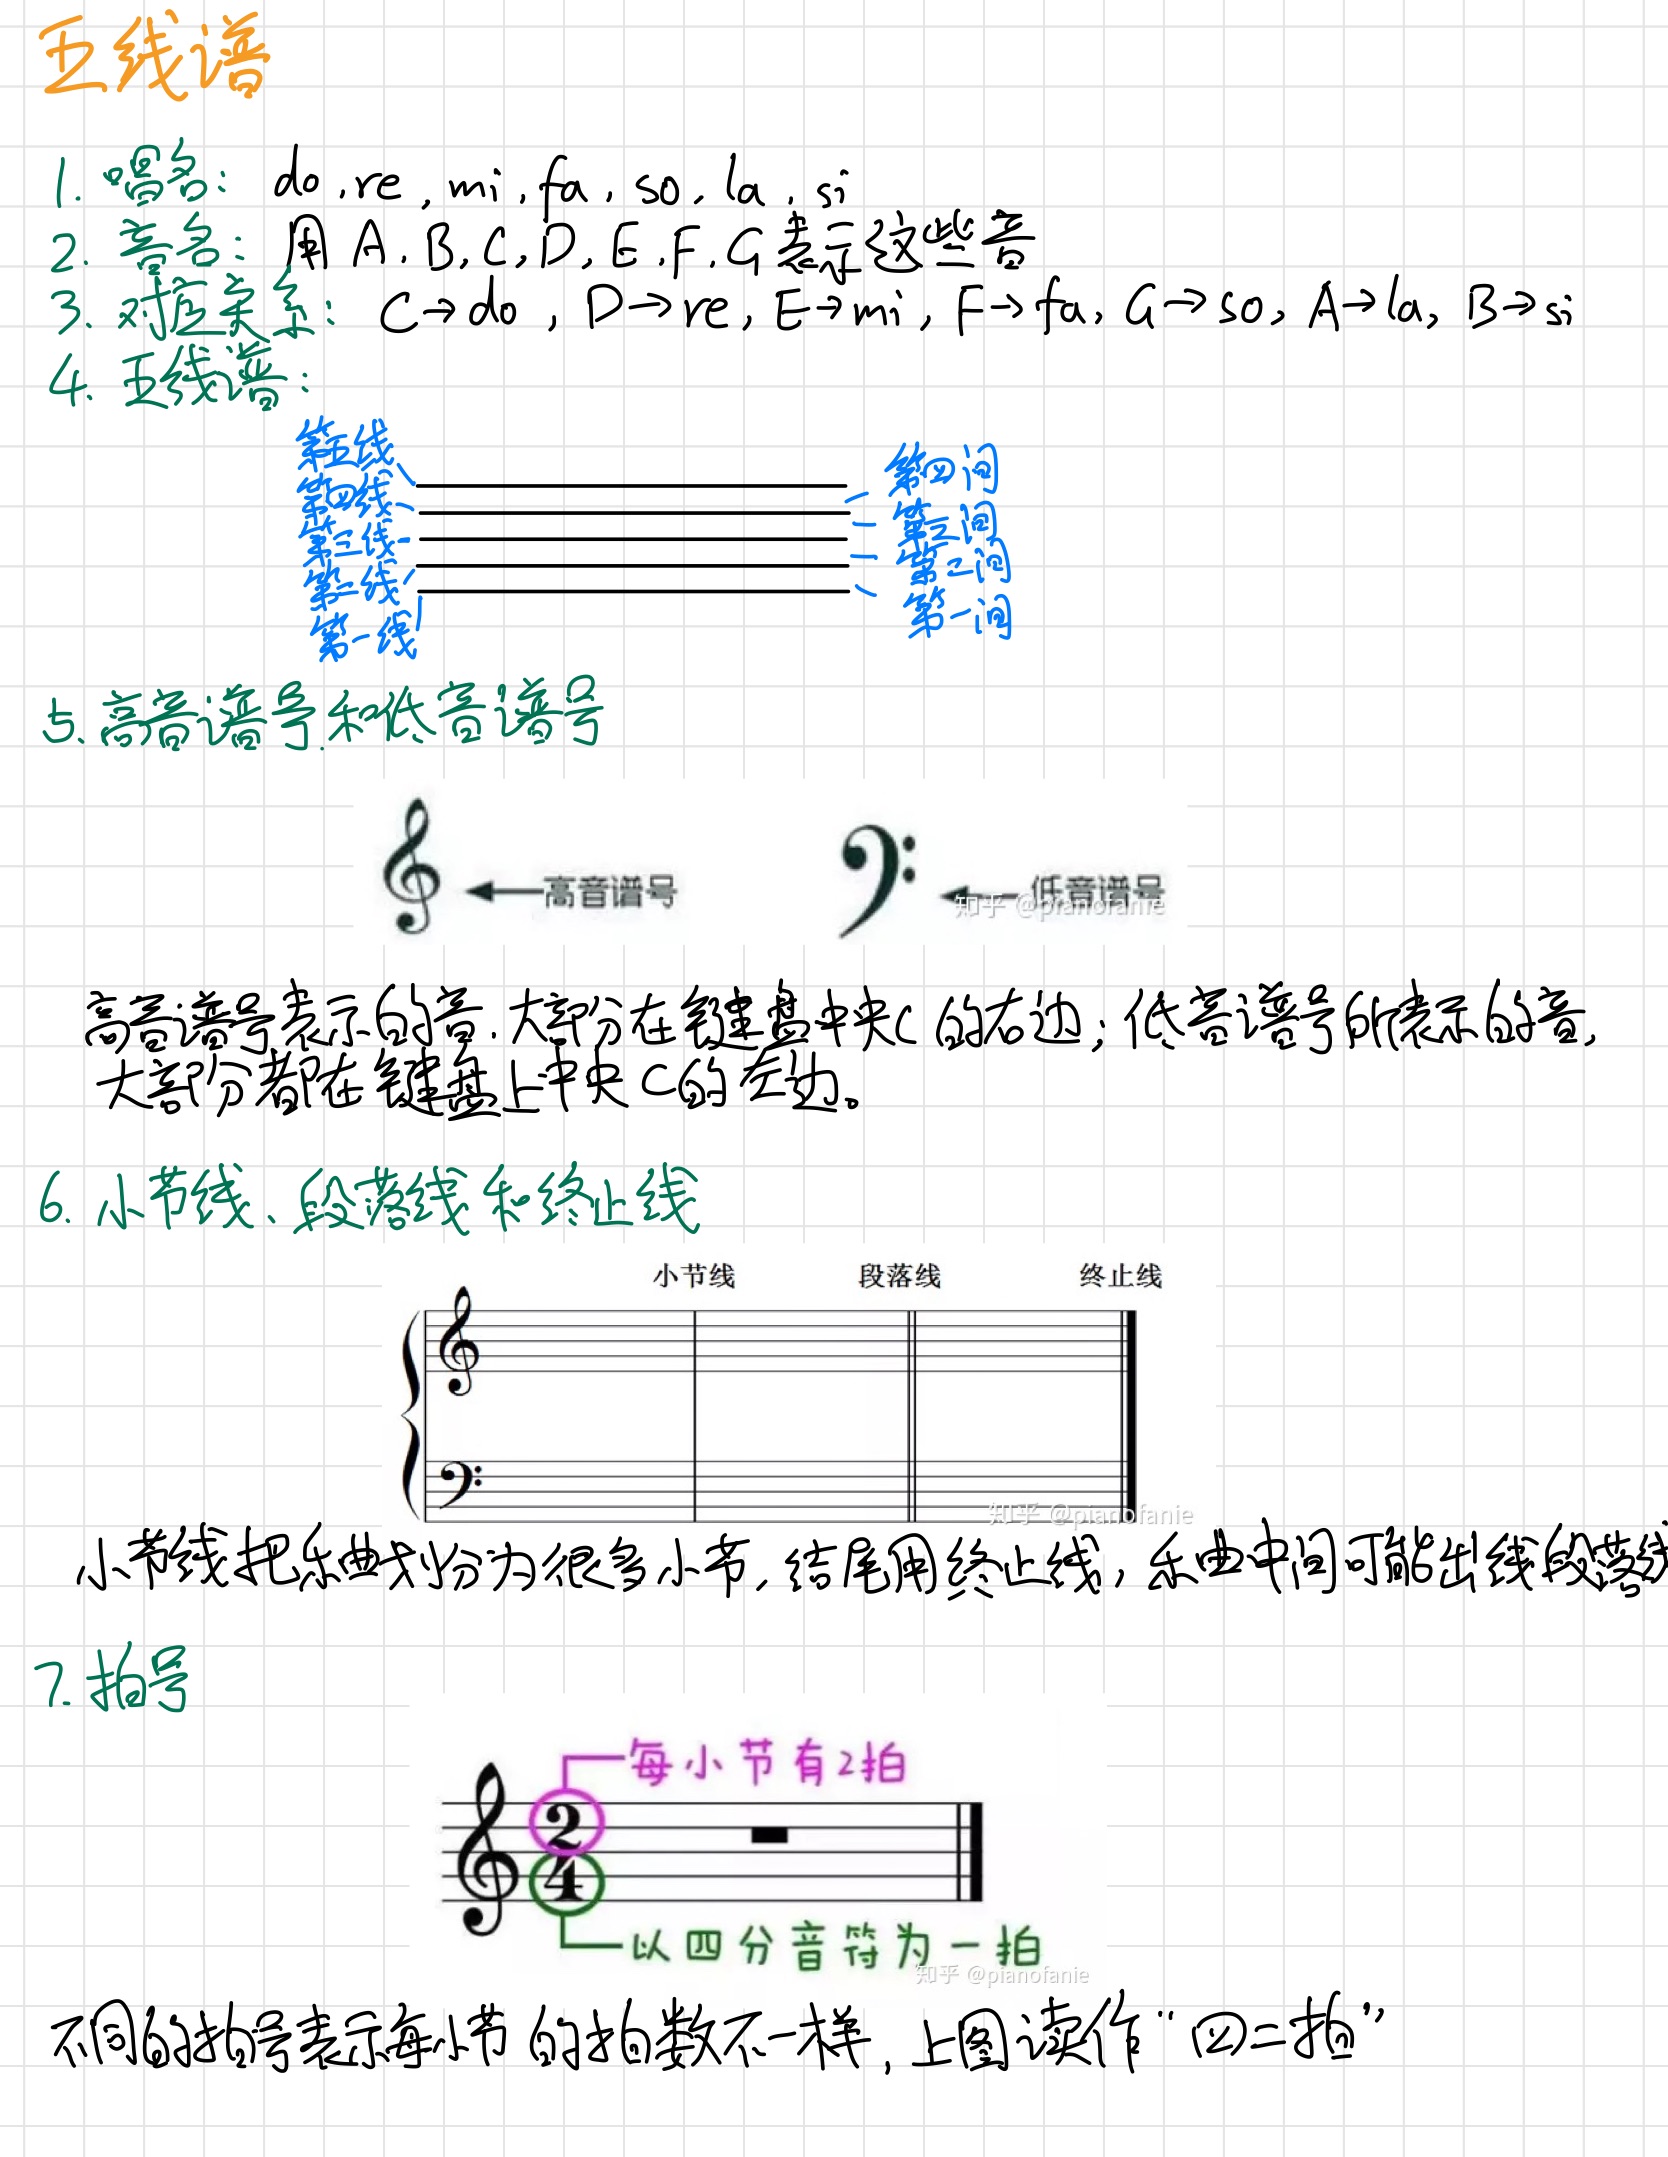 五线谱
1. 唱名: do, re, mi, fa, so, la, si
2. 音名: 用A, B, C, D, E, F, G表示这些音
3. 对应关系: C→do, D→re, E→mi, F→fa, G→so, A→la, B→si
4. 五线谱:
第五线
第四线
第三线
第二线
第一线
第四间
第三间
第二间
第一间
5. 高音谱号和低音谱号
高音谱号
低音谱号
知乎 @pianofanie
高音谱号表示的音, 大部分在键盘中央C的右边; 低音谱号所表示的音,
大部分都在键盘上中央C的左边。
6. 小节线、段落线和终止线
小节线 段落线 终止线
知乎 @pianofanie
小节线把乐曲划分为很多小节, 结尾用终止线, 乐曲中间可能出线段落线
7. 拍号
每小节有2拍
2
4
以四分音符为一拍
知乎 @pianofanie
不同的拍号表示每小节的拍数不一样, 上图读作“四二拍”